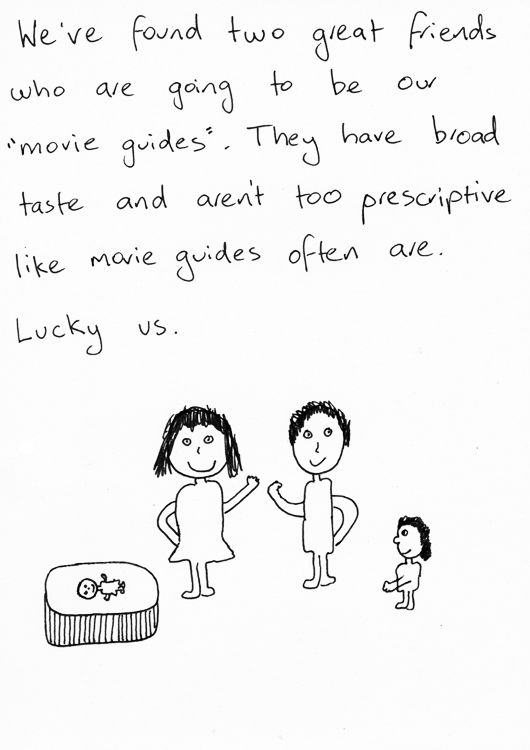 We've found two great friends
who are going to be our
"movie guides". They have broad
taste and aren't too prescriptive
like movie guides often are.
Lucky us.